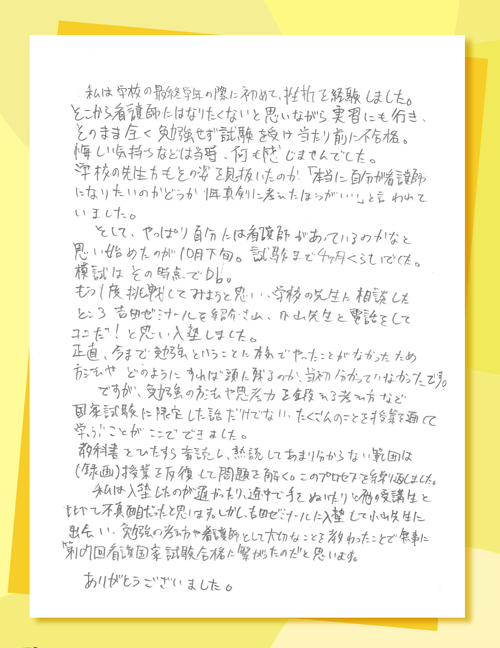 私は学校の最終学年の際に初めて、挫折を経験しました。
そこから看護師にはなりたくないと思いながら実習にも行き、
そのまま全く勉強せず試験を受け当たり前に不合格。
悔しい気持ちなどは当時、何も感じませんでした。
学校の先生方もその姿を見抜いたのか「本当に自分が看護師
になりたいのかどうか1年真剣に考えたほうがいい」と言われて
いました。
そして、やっぱり自分には看護師があっているのかなと
思い始めたのが10月下旬。試験まで4ヶ月くらいでした。
模試はその時点でDb。
もう1度挑戦してみようと思い、学校の先生に相談した
ところ吉田ゼミナールを紹介され、小山先生と電話をして
ココだ!と思い入塾しました。
正直、今まで勉強ということに本気でやったことがなかったため
方法や どのようにすれば頭に残るのか、当初分かっていなかったです。
ですが、勉強の方法や思考力を 考え方など
国家試験に限定した話だけでない、たくさんのことを授業を通して
学ぶことがここでできました。
教科書をひたすら音読し、熟読してあまり分からない範囲は
(録画)授業を反復して問題を解く。このプロセスを繰り返しました。
私は入塾したのが遅かったり、途中で手をぬいたりと他の受講生と
比べて不真面目だったと思います。しかし、吉田ゼミナールに入塾して小山先生に
出会い、勉強の考え方や看護師として大切なことを教わったことで無事に
第109回看護国家試験合格に繋がったのだと思います。
ありがとうございました。